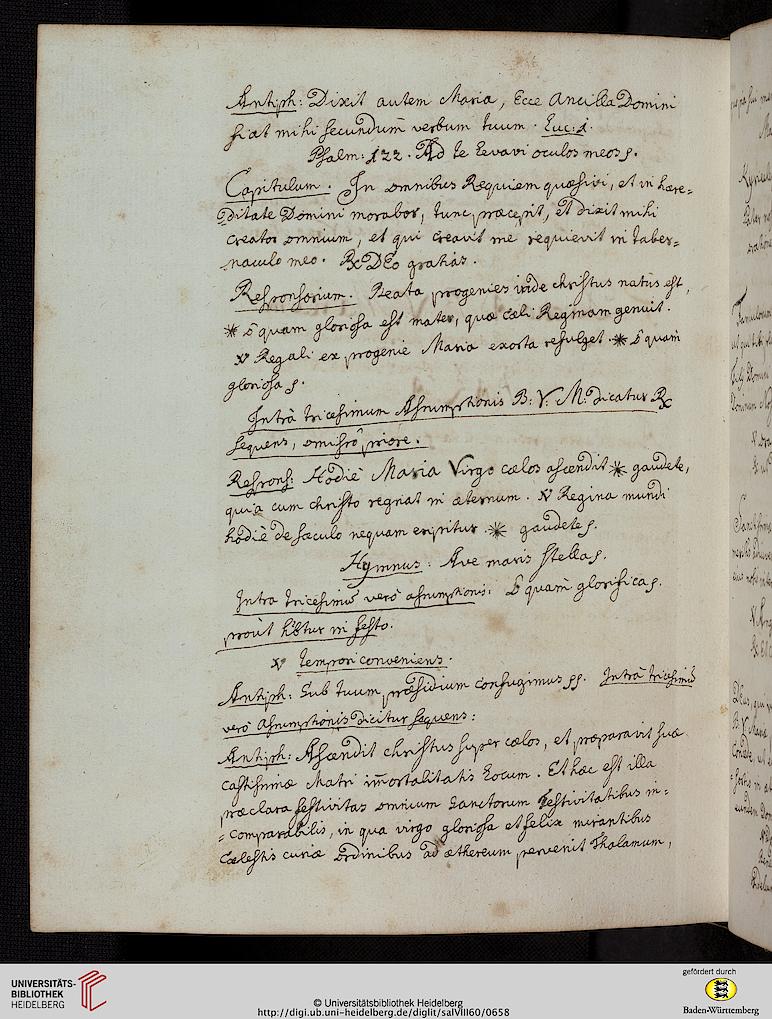 Antiph: Dixit autem Maria, Ecce Ancilla Domini
fiat mihi secundum̄ verbum tuum. Luc: 1.
Psalm: 122. Ad te levavi oculos meos ꝭ.
Capitulum. In omnibus Requiem quæsivi, et in hære=
ditate Domini morabor, tunc præcepit, et dixit mihi
creator omnium, et qui creavit me requievit in taber=
naculo meo. ℞ DEo gratias.
Responsorium. Beata progenies unde christus natus est,
* ô quam gloriosa est mater, quæ cæli Reginam genuit.
℣ Regali ex progenie Maria exorta refulget. * ô quam
gloriosa ꝭ.
Intrà tricesimum Assumptionis B: V: M: dicatur ℞
sequens, omissô priore.
Respons: Hodiè Maria Virgo cælos ascendit * gaudete,
quia cum christo regnat in æternum. ℣ Regina mundi
hodiè de sæculo nequam eripitur * gaudete ꝭ.
Hymnus: Ave maris stella ꝭ.
Intra tricesimū verò assumptionis: O quam glorifica ꝭ.
prout hr̄tur in festo.
℣ tempori conveniens.
Antiph: Sub tuum præsidium confugimus ꝭꝭ. Intrà tricesimū
verò Assumptionis dicitur sequens:
Antiph: Ascendit christus super cælos, et præparavit suæ
castissimæ Matri im̄ortalitatis locum. Et hæc est illa
præclara festivitas omnium Sanctorum festivitatibus in=
=comparabilis, in qua virgo gloriosa et felix mirantibus
Cælestis curiæ ordinibus ad æthereum pervenit Thalamum,
UNIVERSITÄTS-
BIBLIOTHEK
HEIDELBERG
© Universitätsbibliothek Heidelberg
http://digi.ub.uni-heidelberg.de/diglit/salVIII60/0658
gefördert durch
Baden-Württemberg